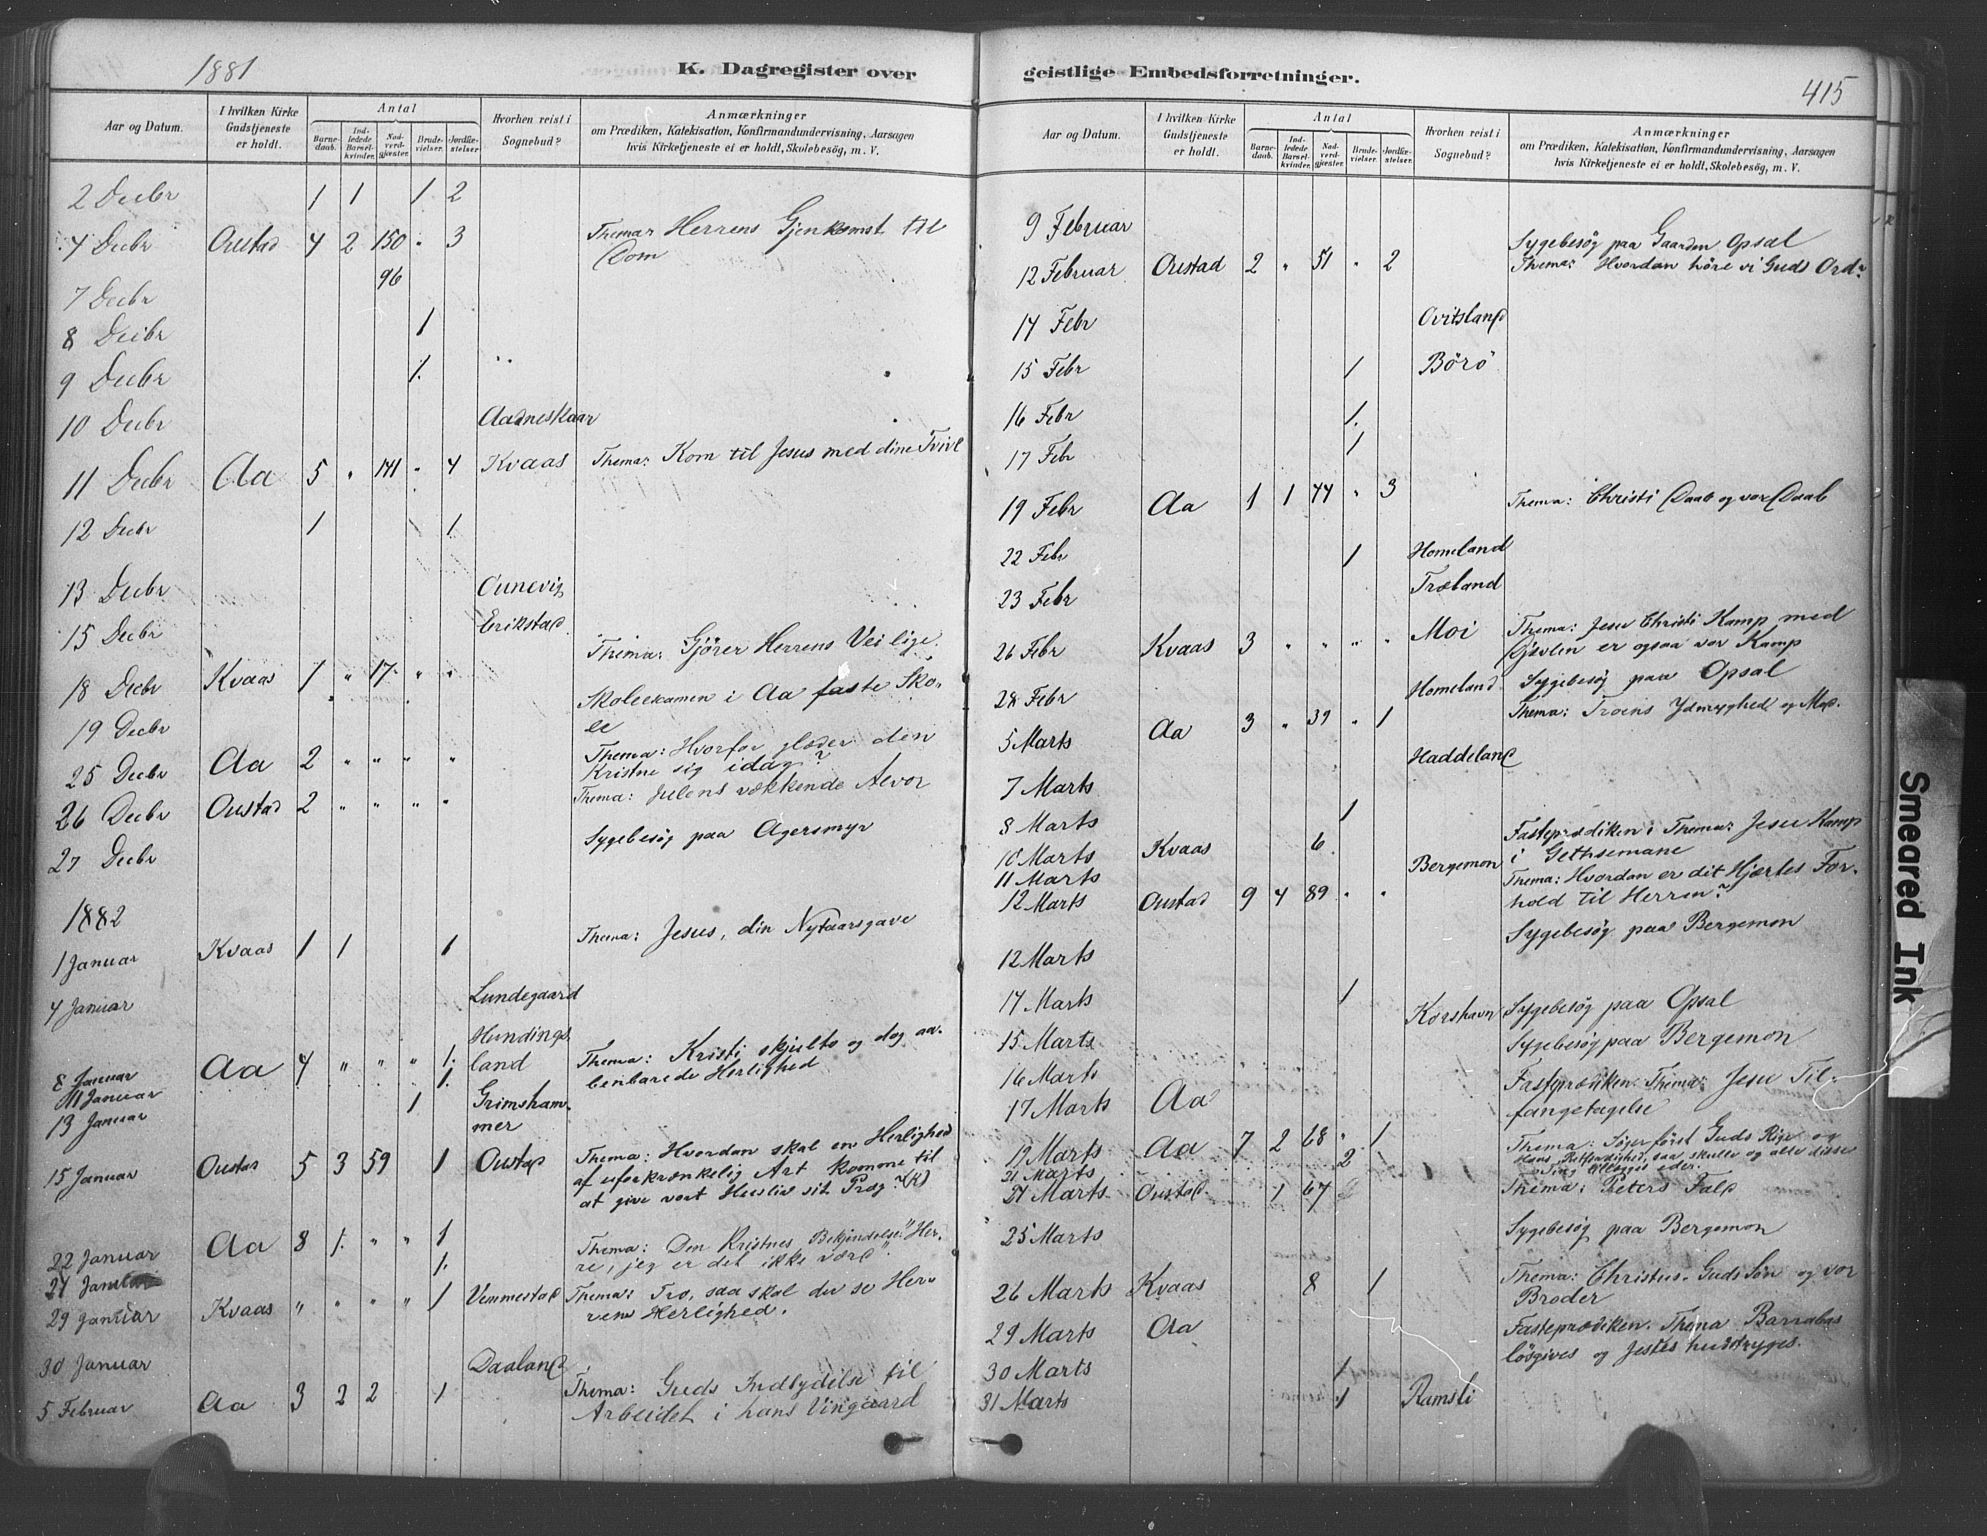 1881
K. Dagregister over
Aar og Datum. | I hvilken Kirke Gudstjeneste er holdt. | Antal | Barnedaab. | Indledede Barselkvinder. | Nadverdgjæster. | Brudevielser. | Jordfæstelser. | Hvorhen reist i Sognebud? | Anmærkninger om Prædiken, Katekisation, Konfirmandundervisning, Aarsagen hvis Kirketjeneste ei er holdt, Skolebesög, m. V.
2 Decbr 1 1 1 2
4 Decbr Oustad 4 2 150 " 3 Thema: Herrens Gjenkomst til
96 Dom
7 Decbr
8 Decbr 1
9 Decbr 1.
10 Decbr Aadneskaar
11 Decbr Aa 5 " 141 " 4 Kvaas Thema: Kom til Jesus med dine Tvivl
12 Decbr 1 1.
13 Decbr Ounevig
15 Decbr Erikstad
18 Decbr Kvaas 1 " 17 " " Thema: Gjörer Herrens Vei lige
19 Decbr Skoleexamen i Aa faste Sko-
le
25 Decbr Aa 2 " " " " Thema: Hvorfor glæder den
Kristne sig idag?
26 Decbr Oustad 2 " " " " Thema: Julens vækkende Alvor
27 Decbr Sygebesög paa Agersmyr
1882
1 Januar Kvaas 1 1 1 Thema: Jesus, din Nytaarsgave
4 Januar Lundegaard
8 Januar Aa 4 " " " 1. Hundingsland Thema: Kristi skjulte og dog aa-
benbarede Herlighed
11 Januar 1.
13 Januar 1 Grimshammer
15 Januar Oustad 5 3 59 1 Oustad Thema: Hvordan skal en Herlighed
af uforkrænkelig Art komme til
at give vort Husliv sit Præg?
22 Januar Aa 8 1. " " 1 Thema: Den Kristnes Bekjendelse: "Her-
re, jeg er det ikke værd".
24 Januar 1.
29 Januar Kvaas " " " " 1 Vemmestad Thema: Tro, saa skal du se Her-
rens Herlighed.
30 Januar Daaland
5 Februar Aa 3 2 2 1 Thema: Guds Indbydelse til
Arbeidet i hans Vingaard
geistlige Embedsforretninger.
415
Aar og Datum. | I hvilken Kirke Gudstjeneste er holdt. | Antal | Barnedaab. | Indledede Barselkvinder. | Nadverdgjæster. | Brudevielser. | Jordfæstelser. | Hvorhen reist i Sognebud? | Anmærkninger om Prædiken, Katekisation, Konfirmandundervisning, Aarsagen hvis Kirketjeneste ei er holdt, Skolebesög, m. V.
9 Februar Sygebesög paa Gaarden Opsal
12 Februar Oustad 2 " 51 " 2 Thema: Hvordan höre vi Guds Ord?
14 Febr Qvitsland
15 Febr 1 Börö
16 Febr 1.
17 Febr 1
19 Febr Aa 1 1 44 " 3 Thema: Christi Daab og vor Daab
22 Febr 1 Homeland
23 Febr Træland
26 Febr Kvaas 3 " " " " Moi Thema: Jesu Christi Kamp med
Djævlen er ogsaa vor Kamp
28 Febr Homeland Sygebesög paa Opsal
5 Marts Aa 3 " 39 " 1 Thema: Troens Ydmyghed og Mod.
7 Marts Haddeland
8 Marts 1
10 Marts Kvaas 6 Fasteprædiken: Thema: Jesu Kamp
i Gethsemane
11 Marts Bergemon
12 Marts Oustad 9 4 89 " " Thema: Hvordan er dit Hjærtes For-
hold til Herren?
12 Marts Sygebesög paa Bergemon
14 Marts 1
15 Marts Korshavn Sygebesög paa Opsal
16 Marts Sygebesög paa Bergemon
17 Marts Aa Fasteprædiken. Thema: Jesu Til-
fangetagelse
19 Marts Aa 7 2 68 " 1 Thema: Söger först Guds Rige og
Hans Retfærdighed, saa skulle og alle disse
Ting tillægges eder.
21 Marts 2
24 Marts Oustad 1 67 Thema: Peters Fald
25 Marts Sygebesög paa Bergemon
26 Marts Kvaas 8 1 Thema: Christus. Guds Sön og vor
Broder
29 Marts Aa Fasteprædiken. Thema Barrabas
lösgives og Jesus hudstryges.
30 Marts 1
31 Marts 1 Ramsli
Smeared Ink